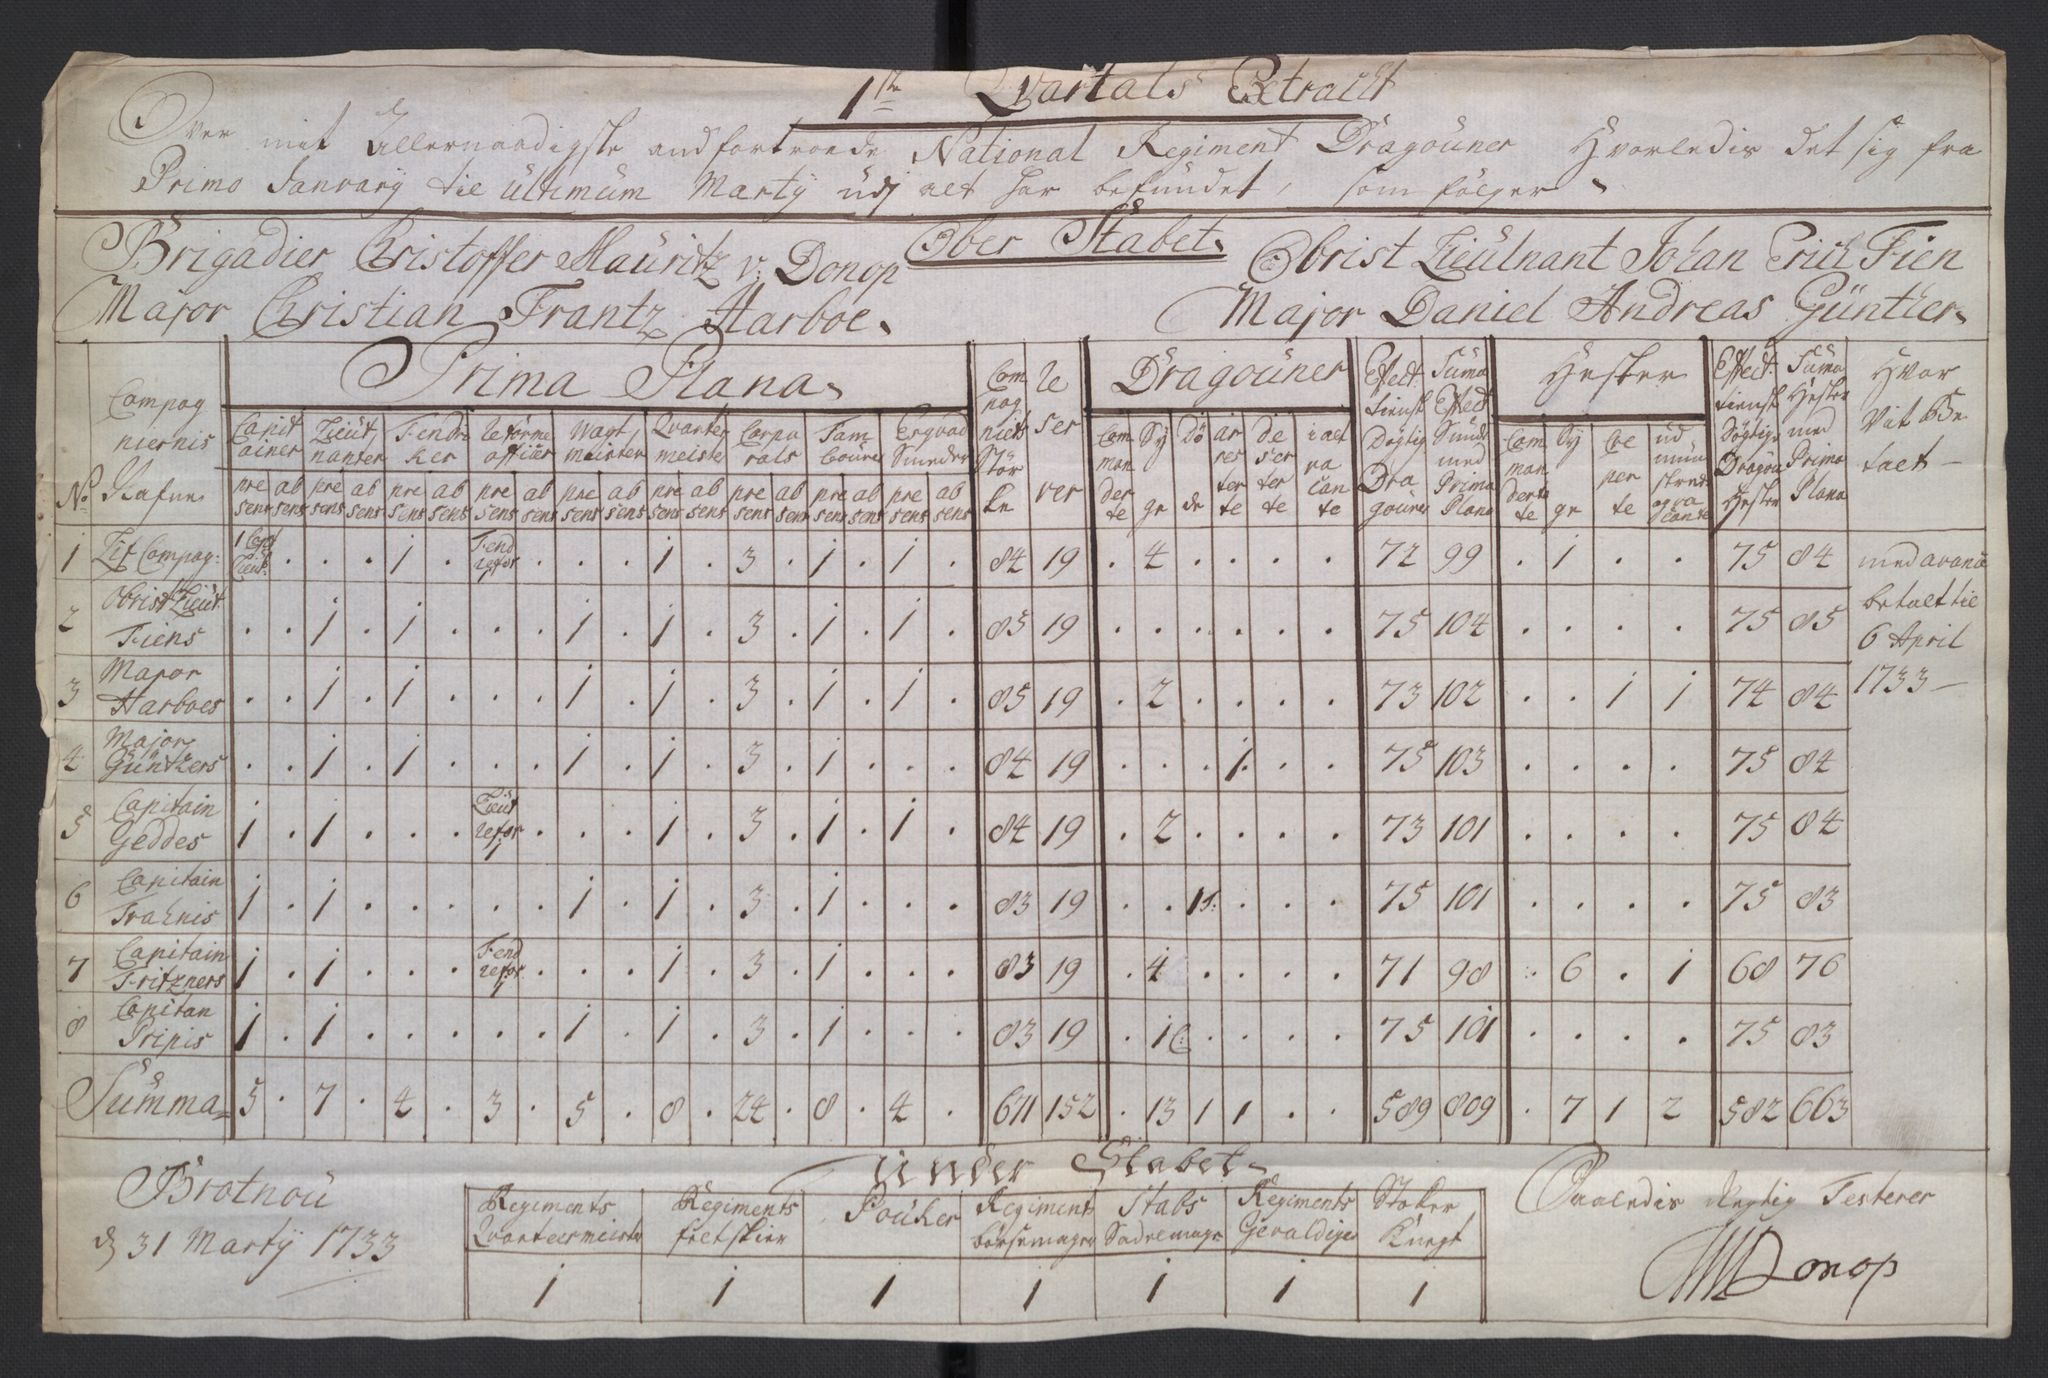 1ste Qvartals Extract
Over mit Allernaadigste andfortroede National Regiment Dragouner Hvorledis det sig fra
Primo Janvarij til ultimum Martij udj alt har befundet, som følger
Ober Stabet
Brigadier Cristoffer Mauritz v: Donop
Obrist Lieutnant Johan Erich Fien
Major Christian Frantz Harboe
Major Daniel Andreas Günther
No Compag niernis Nafne
Prima Plana
Capit ainer Lieut nanter Fendri ker Reforme officier Wagt meister Qvarter meister Corpo rals Tam bourer
pre sens ab sens pre sens ab sens pre sens ab sens pre sens ab sens pre sens ab sens pre sens ab sens pre sens ab sens pre sens ab sens pre sens ab sens
Com pag niets Stør ke
Re ser ver
Dragouner
Com man der te Sy ge Dø de ar res ter te de ser ter te vacan te
Effect tiensk Døgtig Dra gouner
Suma Effect med Prima Plana
Hester
Com man derte Sy ge Cre per te ud mun stret og va cante
Effect tiensk Døgtige Dragou Hester
Suma Hester med Prima Plana
Hvor Vit Be talt
1 Lif Compag: 1 Capt Lieut: . . . 1 . Fend refor 1 . . . 1 . 3 . 1 . 1 . 84 19 . 4 . . . . 72 99 . 1 . . 75 84
2 Obrist Lieut Fiens . . 1 . 1 . . . 1 . 1 . 3 . 1 . 1 . 85 19 . . . . . . 75 104 . . . . 75 85
3 Major Harboes . . 1 . 1 . . . 1 . 1 . 3 . 1 . 1 . 85 19 . 2 . . . . 73 102 . . 1 1 74 84
4 Major Günthers . . 1 . 1 . . . 1 . 1 . 3 . 1 . . . 84 19 . . . 1 . . 75 103 . . . . 75 84
5 Capitain Geddes 1 . 1 . . . Lieut refor 1 . . . 1 . 3 . 1 . 1 . 84 19 . 2 . . . . 73 101 . . . . 75 84
6 Capitain 1 . 1 . . . . . 1 . 1 . 3 . 1 . . . 83 19 . . 1 . . . 75 101 . . . . 75 83
7 Capitain Fritzners 1 . 1 . . . Fend refor 1 . . . 1 . 3 . 1 . . . 83 19 . 4 . . . . 71 98 . 6 . 1 68 76
8 Capitan Pripis 1 . 1 . . . . . 1 . 1 . 3 . 1 . . . 83 19 . 1 . . . . 75 101 . . . . 75 83
Summa 5 . 7 . 4 . 3 . 5 . 8 . 24 . 8 . 4 . 671 152 . 13 1 1 . . 589 809 . 7 1 2 582 663
med avance
betalt til
6 April
1733
Under Stabet
Regiments Qvarteermeister Regiments Feltskier Pouker Regiments bøssemager Stabs Sadelmager Regiments Geraldiger Stoker Knegt
1 1 1 1 1 1 1
Brotnou
d 31 Martij 1733
Saaledis Rigtig Testerer
Donop